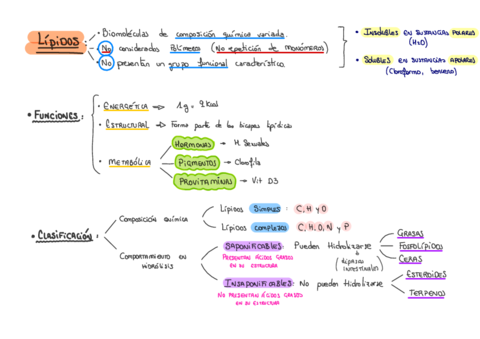 Lípidos:
• Biomoléculas de composición química variada.
• No considerados Polímeros (No repetición de monómeros)
• No presentan un grupo funcional característico.
• Insolubles en sustancias polares
(H2O)
• Solubles en sustancias apolares
(cloroformo, benceno)
• Funciones:
• Energética → 1g = 9kcal
• Estructural → Forma parte de las bicapas lipídicas
• Metabólica
Hormonas → H. Sexuales
Pigmentos → Clorofila
Provitaminas → Vit D3
• Clasificación:
Composición química
Lípidos Simples: C, H y O
Lípidos complejos C, H, O, N y P
Comportamiento en
Hidrólisis
Saponificables: Pueden Hidrolizarse
Presentan ácidos grasos
en su estructura
(lipasas
intestinales)
Grasas
Fosfolípidos
Ceras
Insaponificables: No pueden Hidrolizarse
No presentan ácidos grasos
en su estructura
Esteroides
Terpenos